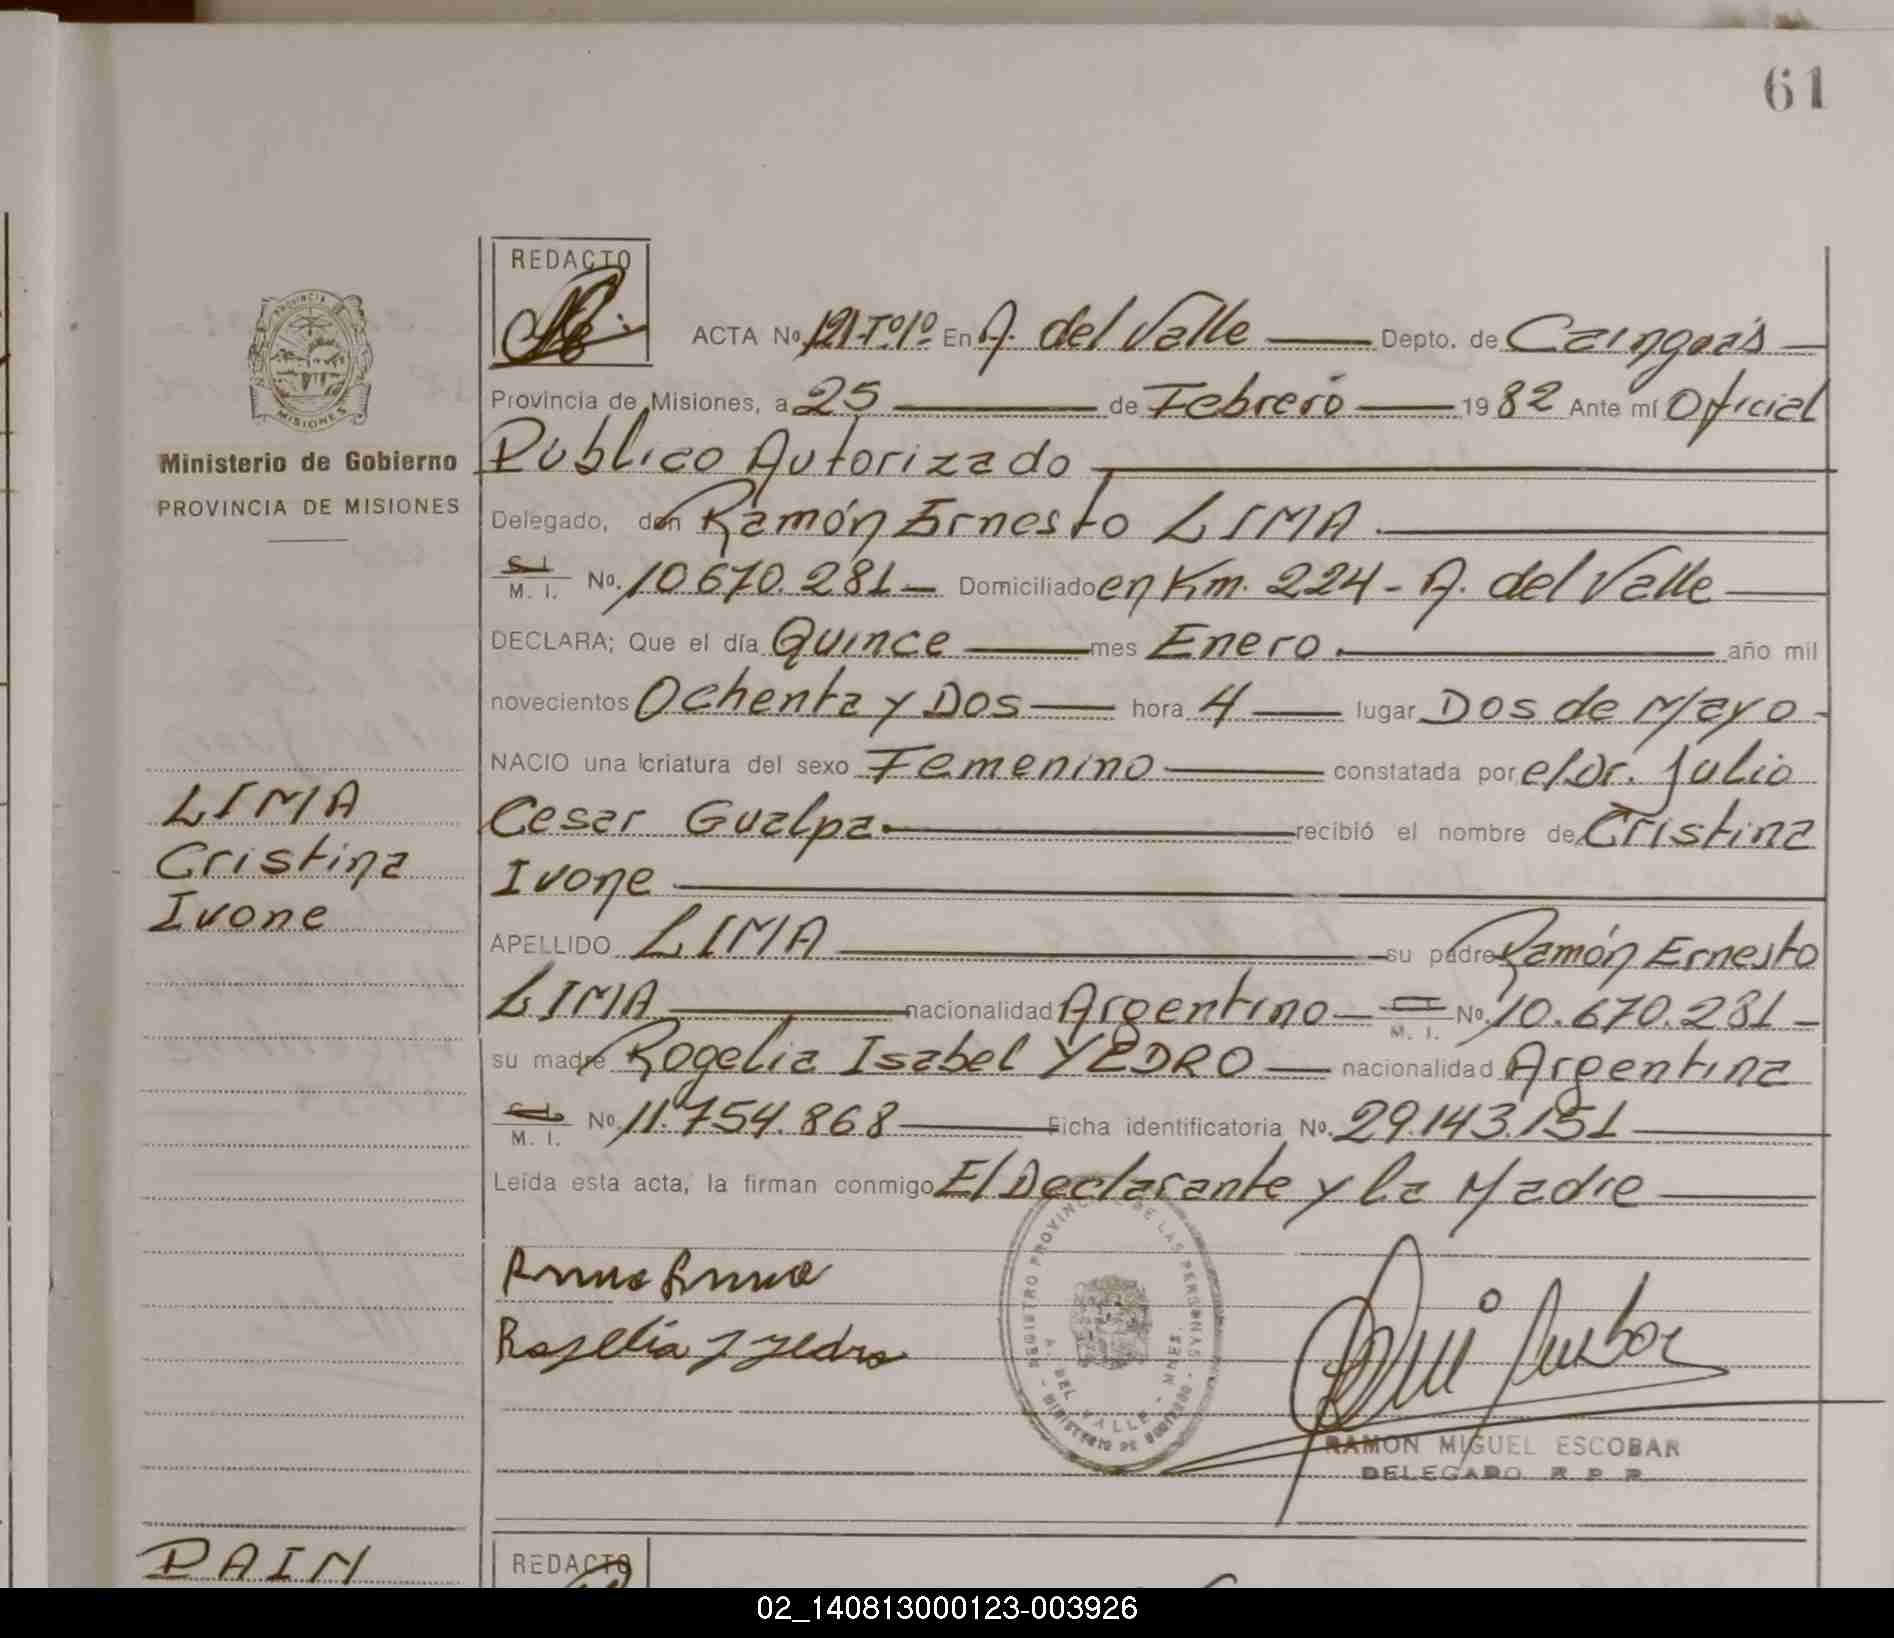 61
REDACTO
ACTA No. 121-Tº1º En A. del Valle Depto. de Cainguás
Provincia de Misiones, a 25 de Febrero 1982 Ante mí Oficial
Público Autorizado
Delegado, don Ramón Ernesto LIMA.
M. I. No. 10.670.281 Domiciliado en Km. 224 - A. del Valle
DECLARA; Que el día Quince mes Enero. año mil
novecientos Ochenta y Dos hora 4 lugar Dos de Mayo
NACIO una criatura del sexo Femenino constatada por el Dr. Julio
Cesar Gualpa. recibió el nombre de Cristina
Ivone
APELLIDO LIMA su padre Ramón Ernesto
LIMA nacionalidad Argentino M. I. No. 10.670.281
su madre Rogelia Isabel YEDRO nacionalidad Argentina
M. I. No. 11.754.868 Ficha identificatoria No. 29.143.151
Leída esta acta, la firman conmigo El Declarante y La Madre
Rogelia I Yedro
REGISTRO PROVINCIAL DE LAS PERSONAS
A. DEL VALLE - MNES.
MINISTERIO DE GOBIERNO
RAMON MIGUEL ESCOBAR
DELEGADO R P P
PROVINCIA DE
MISIONES
Ministerio de Gobierno
PROVINCIA DE MISIONES
LIMA
Cristina
Ivone
PAIN
REDACTO
02_140813000123-003926